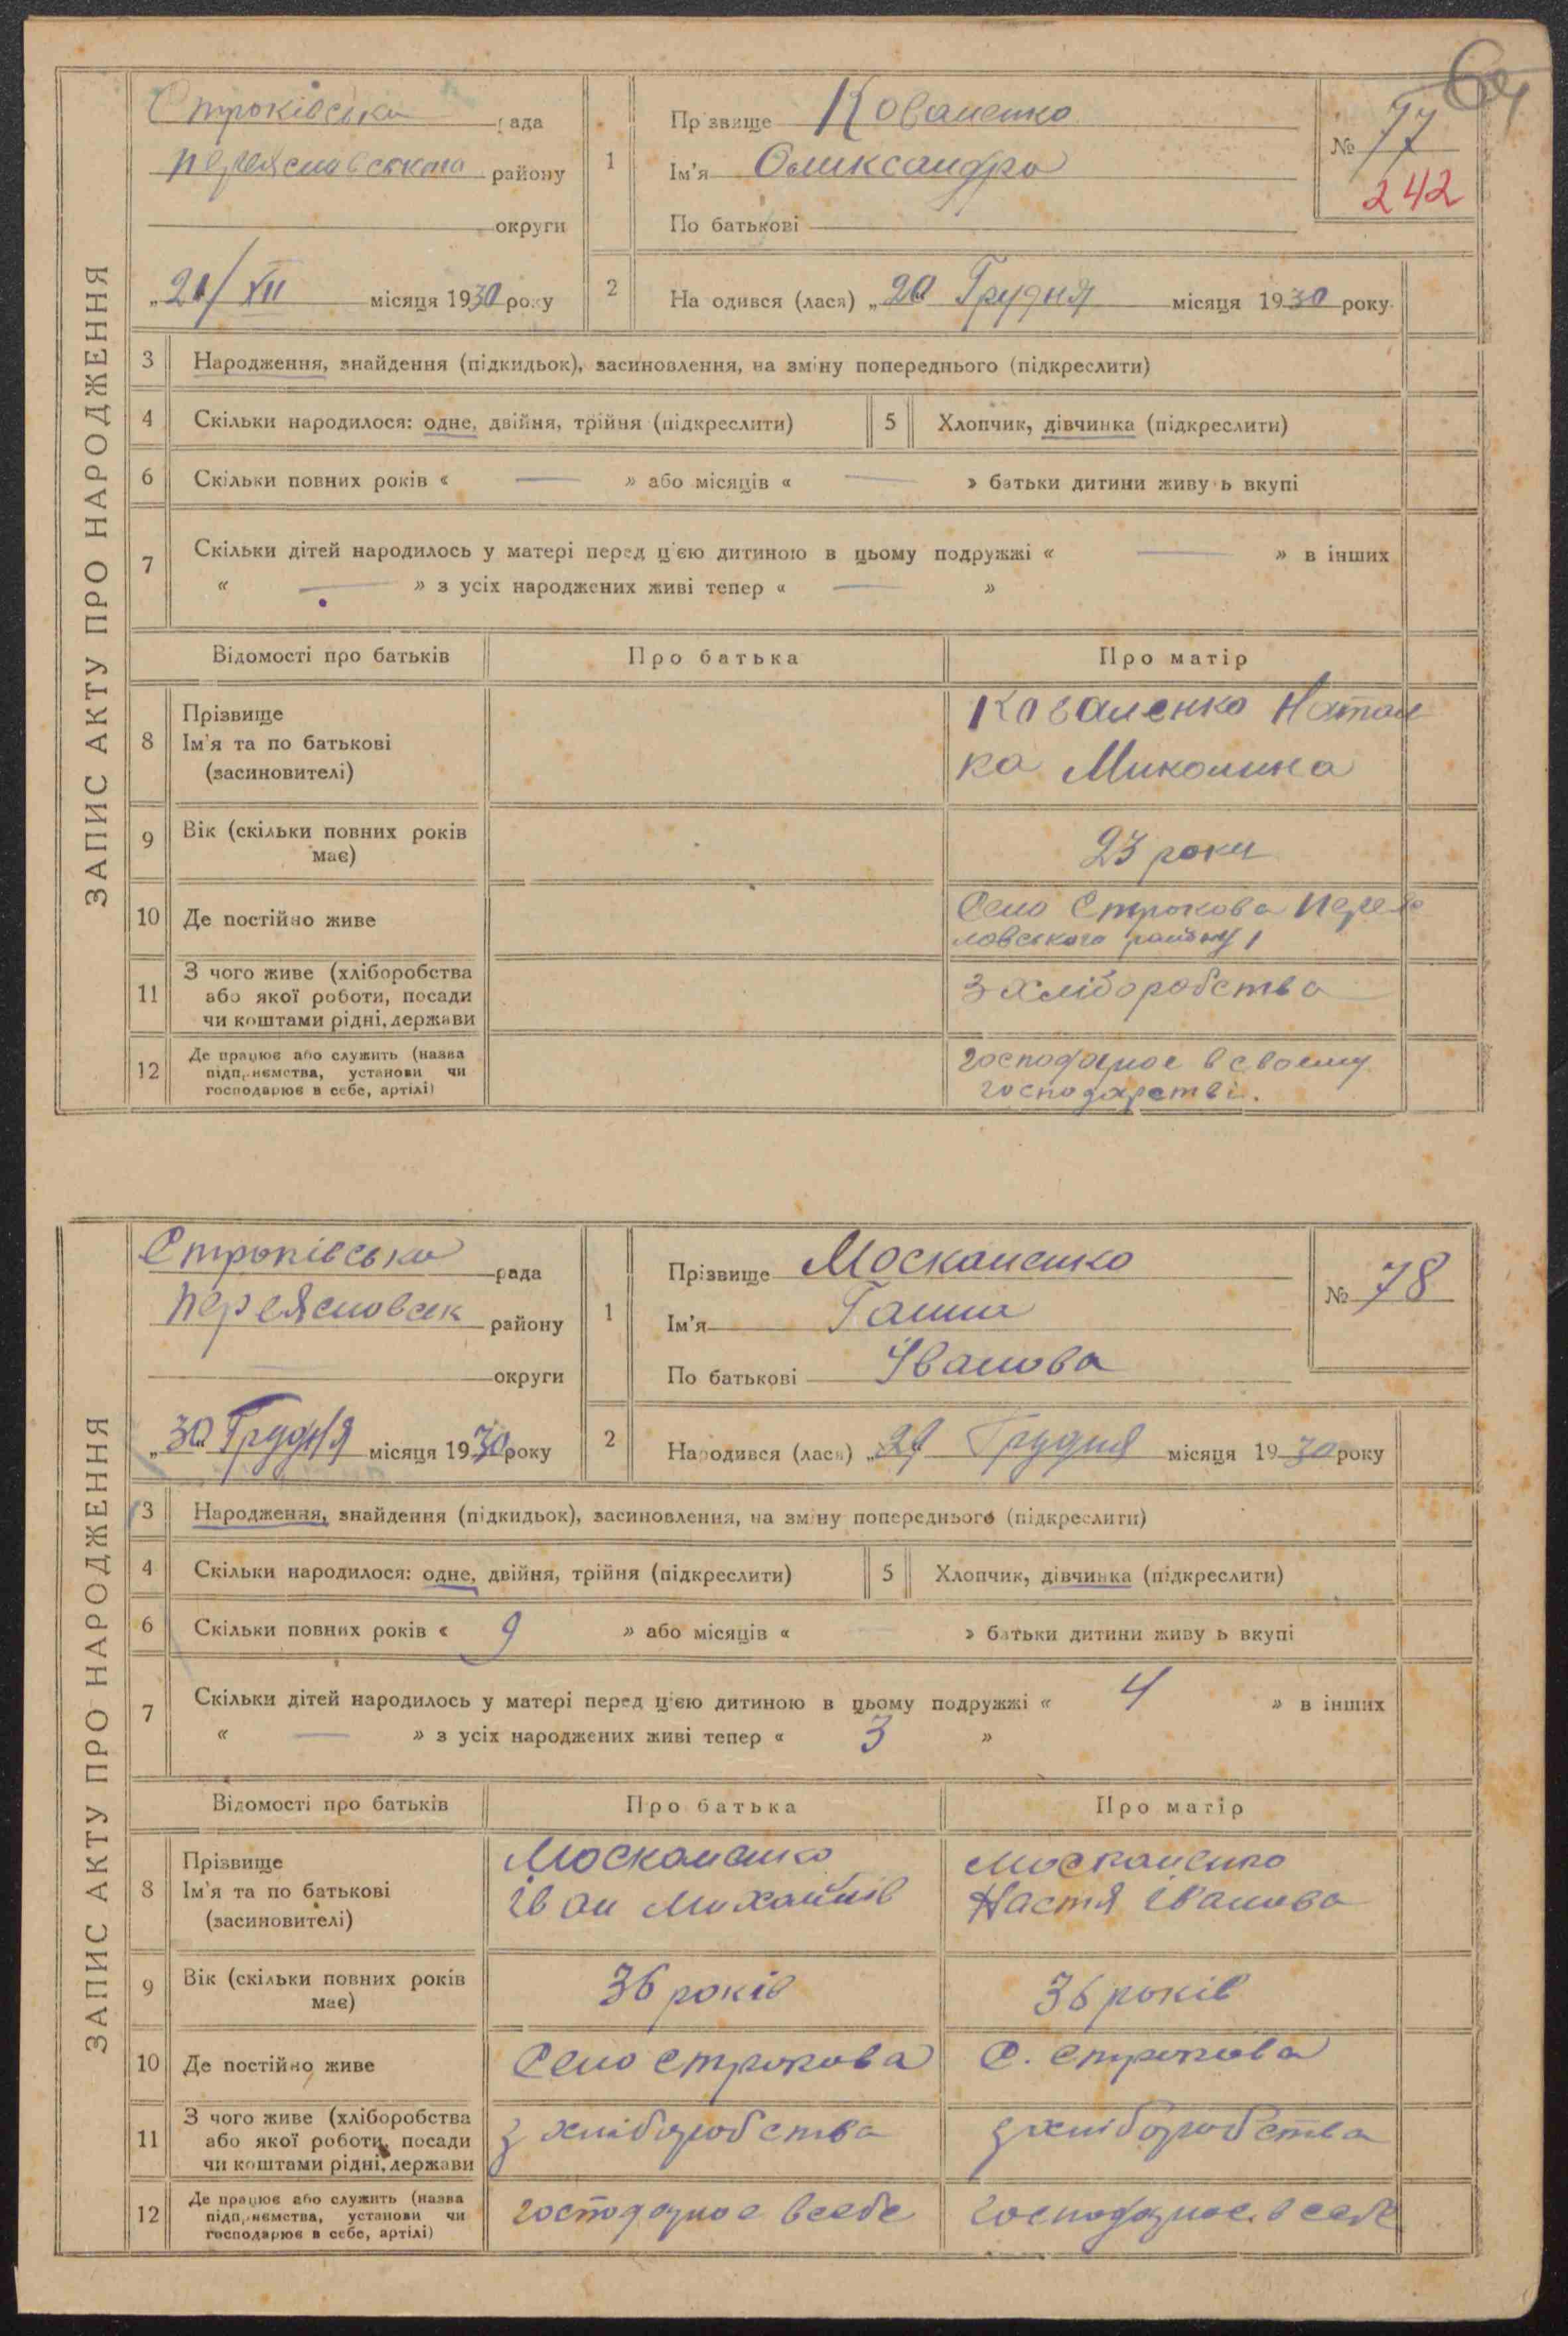 64
ЗАПИС АКТУ ПРО НАРОДЖЕННЯ
Строківська рада
Переяславського району
округи
„21/XII місяця 1930 року
1 Прізвище Коваленко
Ім'я Олександра
По батькові
№ 77
242
2 Народився (лася) „20 Грудня місяця 1930 року
3 Народження, знайдення (підкидьок), засиновлення, на зміну попереднього (підкреслити)
4 Скільки народилося: одне, двійня, трійня (підкреслити) 5 Хлопчик, дівчинка (підкреслити)
6 Скільки повних років « — » або місяців « — » батьки дитини живуть вкупі
7 Скільки дітей народилось у матері перед ц'єю дитиною в цьому подружжі « — » в інших
« — » з усіх народжених живі тепер « — »
Відомості про батьків Про батька Про матір
8 Прізвище
Ім'я та по батькові
(засиновителі)
Коваленко Натал
ка Миколина
9 Вік (скільки повних років
має)
23 роки
10 Де постійно живе
Село Строкова Перея
лавського району
11 З чого живе (хліборобства
або якої роботи, посади
чи коштами рідні, держави
З хліборобства
12 Де працює або служить (назва
підприємства, установи чи
господарює в себе, артілі)
господарює в своему
господарстві.
ЗАПИС АКТУ ПРО НАРОДЖЕННЯ
Строківська рада
Переяславськ району
— округи
„30 Грудня місяця 1930 року
1 Прізвище Москаленко
Ім'я Ганна
По батькові Іванова
№ 78
2 Народився (лася) „29 Грудня місяця 1930 року
3 Народження, знайдення (підкидьок), засиновлення, на зміну попереднього (підкреслити)
4 Скільки народилося: одне, двійня, трійня (підкреслити) 5 Хлопчик, дівчинка (підкреслити)
6 Скільки повних років « 9 » або місяців « » батьки дитини живуть вкупі
7 Скільки дітей народилось у матері перед ц'єю дитиною в цьому подружжі « 4 » в інших
« — » з усіх народжених живі тепер « 3 »
Відомості про батьків Про батька Про матір
8 Прізвище
Ім'я та по батькові
(засиновителі)
Москаленко
Іван Михайлів
Москаленко
Настя Іванова
9 Вік (скільки повних років
має)
36 років
36 років
10 Де постійно живе
Село Строкова
С. Строкова
11 З чого живе (хліборобства
або якої роботи, посади
чи коштами рідні, держави
з хліборобства
з хліборобства
12 Де працює або служить (назва
підприємства, установи чи
господарює в себе, артілі)
господарює в себе
господарює в себе